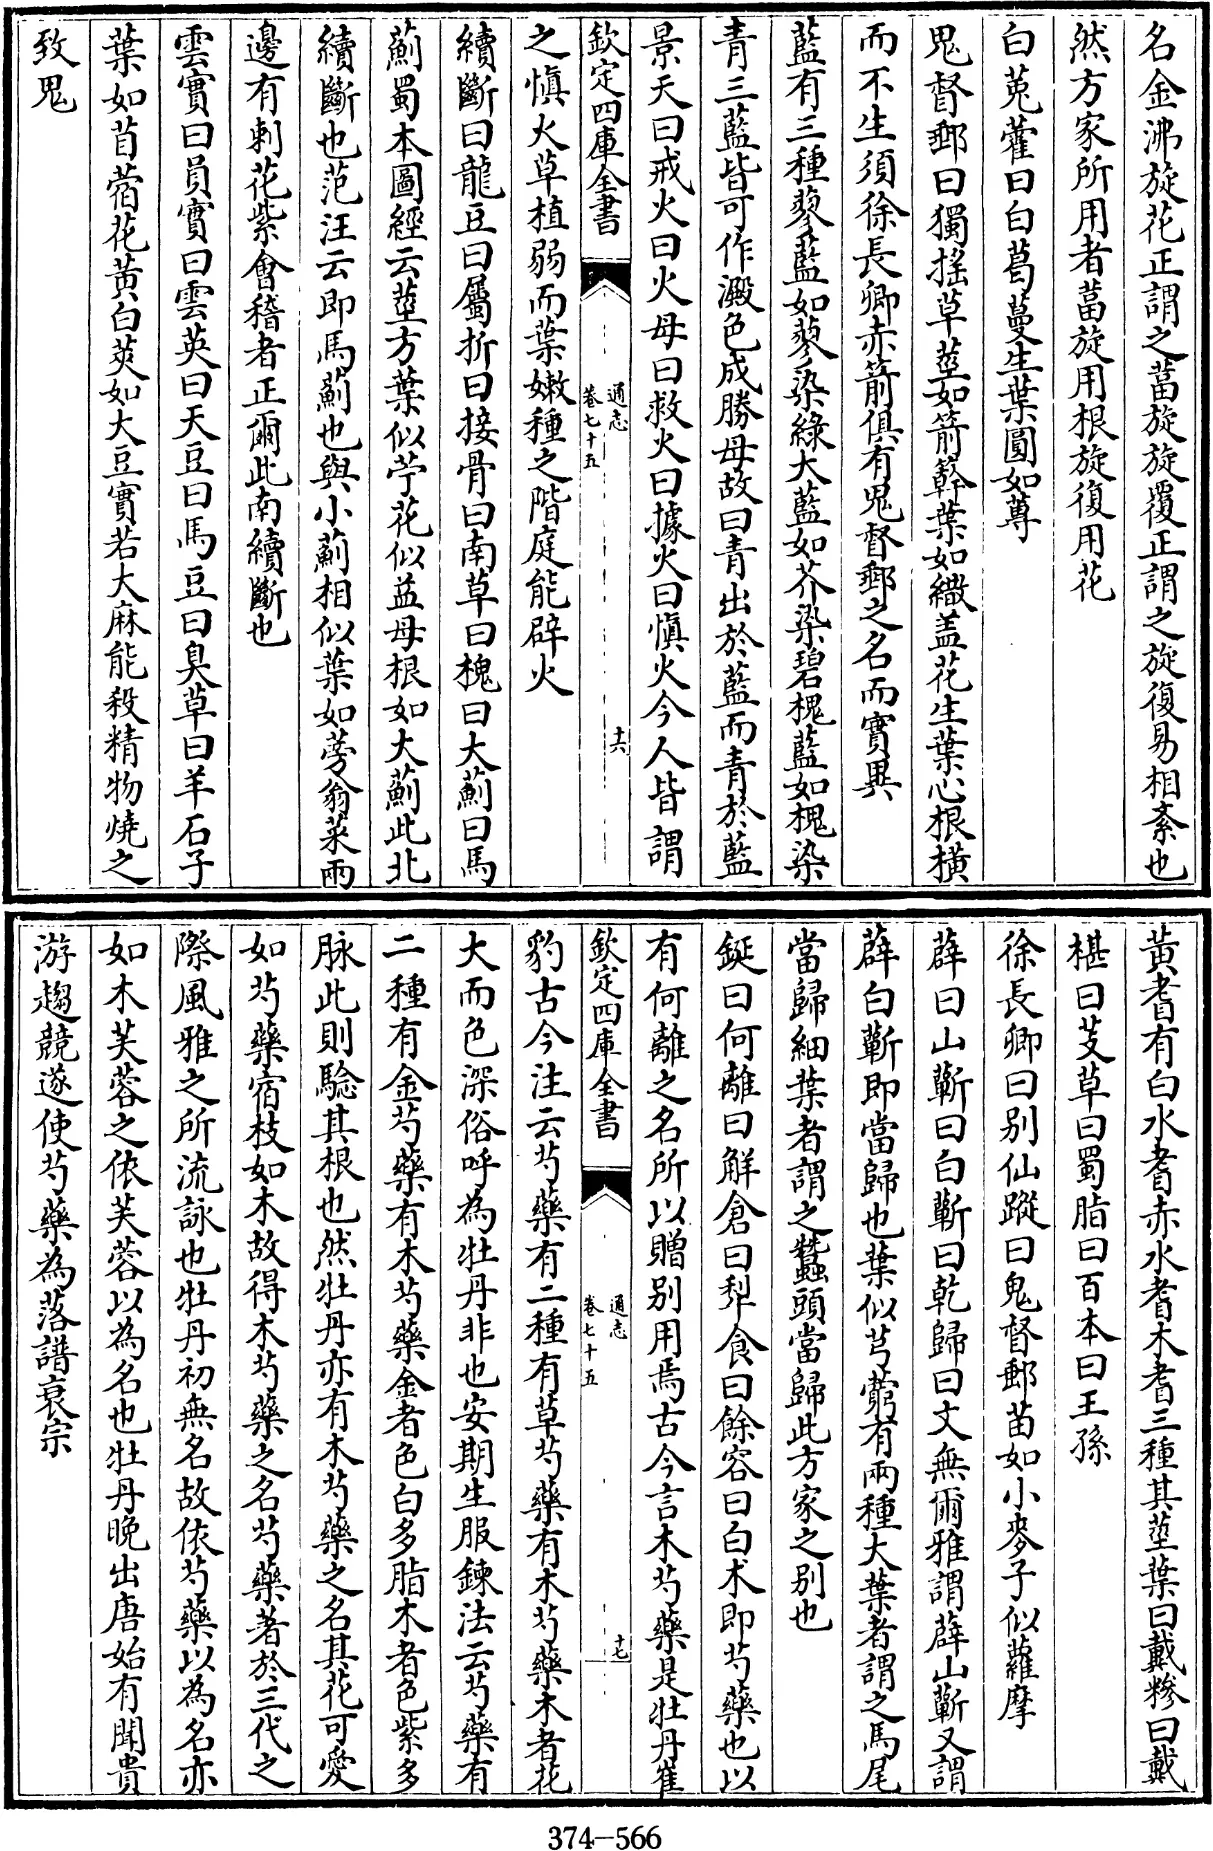 名金沸旋花正謂之葍旋旋覆正謂之旋復易相紊也
然方家所用者葍旋用根旋復用花
白莵藿曰白葛蔓生葉圓如蓴
鬼督郵曰獨摇草莖如箭簳葉如繖盖花生葉心根横
而不生須徐長卿赤箭俱有鬼督郵之名而實異
藍有三種蓼藍如蓼染綠大藍如芥染碧槐藍如槐染
青三藍皆可作澱色成勝母故曰青出於藍而青於藍
景天曰戒火曰火母曰救火曰據火曰慎火今人皆謂
欽定四庫全書
通志
卷七十五
十六
之慎火草植弱而葉嫩種之階庭能辟火
續斷曰龍豆曰屬折曰接骨曰南草曰槐曰大薊曰馬
薊蜀本圖經云莖方葉似苧花似益母根如大薊此北
續斷也范汪云即馬薊也與小薊相似葉如蒡翁菜兩
邊有刺花紫會稽者正爾此南續斷也
雲實曰員實曰雲英曰天豆曰馬豆曰臭草曰羊石子
葉如苜蓿花黄白莢如大豆實若大麻能殺精物燒之
致鬼
黄耆有白水耆赤水耆木耆三種其莖葉曰戴糝曰戴
椹曰芰草曰蜀脂曰百本曰王孫
徐長卿曰别仙蹤曰鬼督郵苗如小麥子似蘿摩
薜曰山蘄曰白蘄曰乾歸曰文無爾雅謂薜山蘄又謂
薜白蘄即當歸也葉似芎藭有兩種大葉者謂之馬尾
當歸細葉者謂之蠶頭當歸此方家之别也
鋋曰何離曰解倉曰犂食曰餘容曰白朮即芍藥也以
有何離之名所以贈别用焉古今言木芍藥是牡丹崔
欽定四庫全書
通志
卷七十五
十七
豹古今注云芍藥有二種有草芍藥有木芍藥木者花
大而色深俗呼為牡丹非也安期生服鍊法云芍藥有
二種有金芍藥有木芍藥金者色白多脂木者色紫多
脉此則驗其根也然牡丹亦有木芍藥之名其花可愛
如芍藥宿枝如木故得木芍藥之名芍藥著於三代之
際風雅之所流詠也牡丹初無名故依芍藥以為名亦
如木芙蓉之依芙蓉以為名也牡丹晚出唐始有聞貴
游趨競遂使芍藥為落譜衰宗
374-566